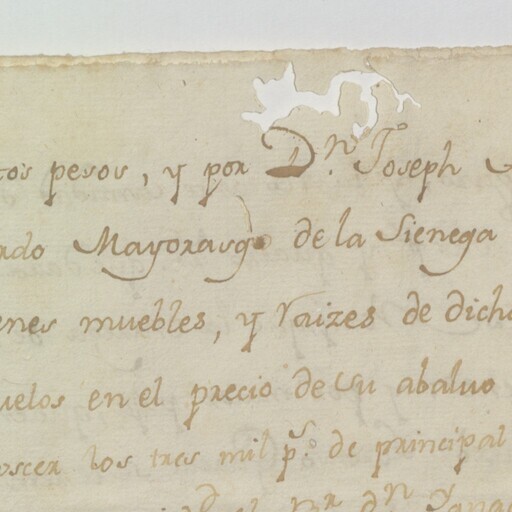 tos pesos, y por Dn. Joseph
ado Mayorasgo de la Sienega
enes muebles, y raizes de dicho
uelos en el precio de su abaluo
oscer los tres mil ps. de principal
el Sr. dn